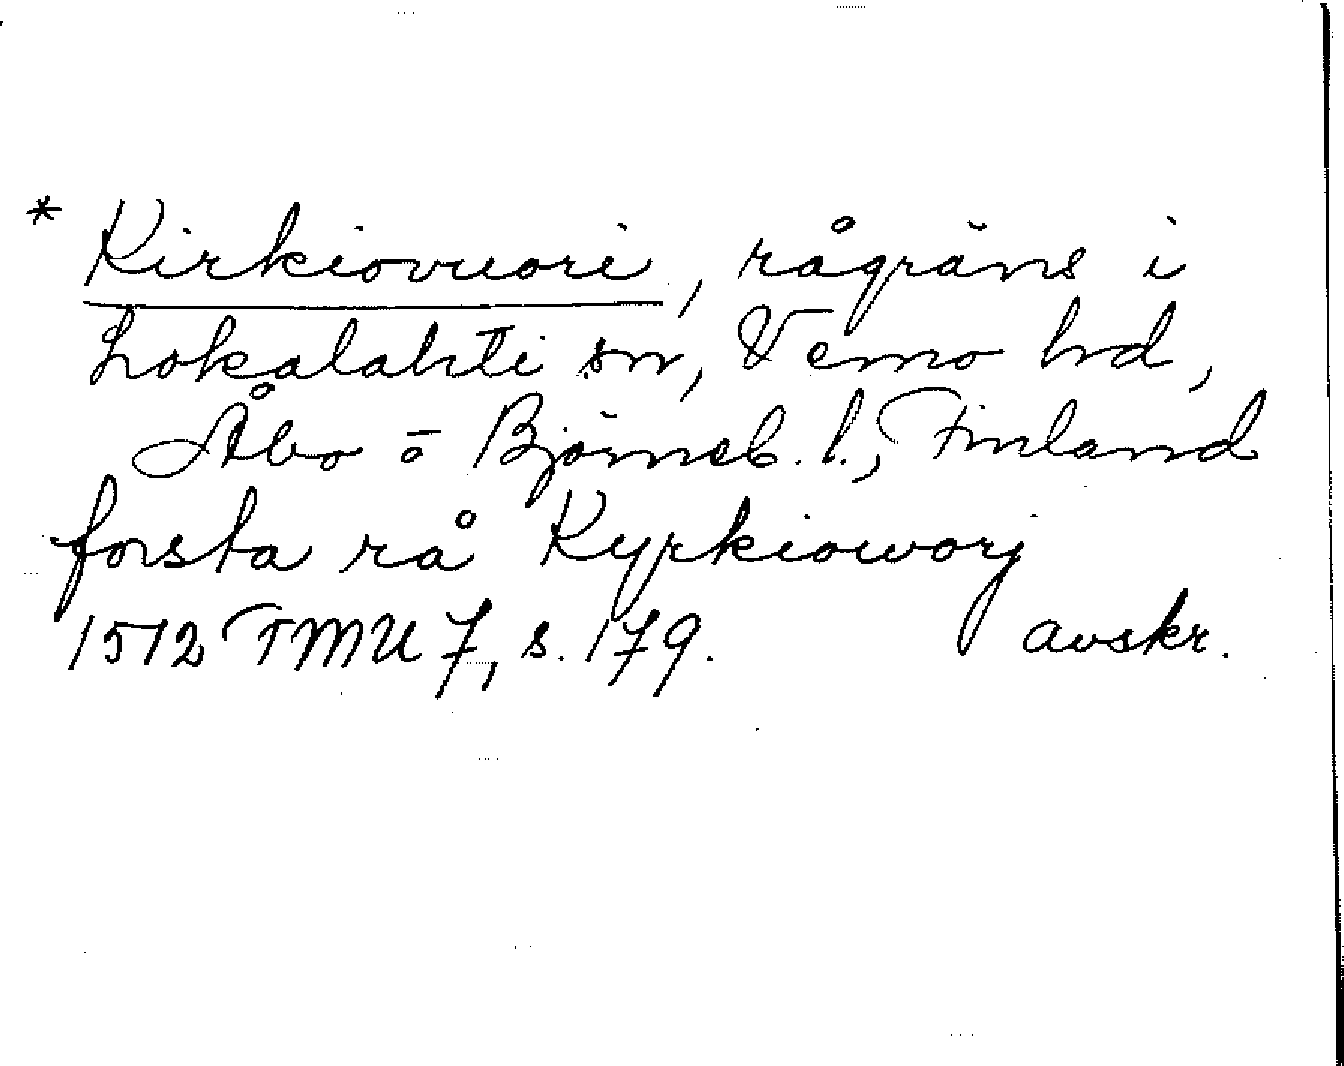 * Kirkiovuori, rågräns i
Lokalahti sn, Vemo hd,
Åbo o Björneb. l., Finland
forsta rå Kyrkioworj
1512 TMU 7, s. 179. avskr.